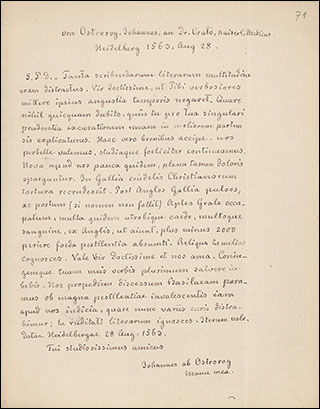 71
vom Ostrorog, Johannes, an Dr. Crato, Kaiserl.
Heidelberg 1563, Aug 28.
S. P. D. – Tanta scribendarum literarum multitudine
eram distractus, Vir doctissime, ut Tibi verbosiores
mittere ipsius angustia temporis negaret. Quare
nihil quicquam dubito, quin tu pro tua singulari
prudentia excusationem meam in meliorem partem
sis explicaturus. Haec vero brevibus accipe. nos
pulbelle valemus, studiaque foeliciter continuamus.
Nova apud nos pauca quidem, plena tamen doloris
sparguntur. In Gallia crudelis Christianorum
tortura recrudescit. Post Anglos Gallia pulsos,
ac portum (si nomen non fallit) Aples Grale occu-
patum, multa quidem utrobique caede, multoque
sanguine, ex Anglis, ut aiunt, plus minus 2000
periere foeda pestilentia absumti. Reliqua
cognosces. Vale Vir Doctissime et nos ama. Coniu-
gemque tuam meis verbis plurimum salvere iu-
bebis. Nos propediem discessum Basilaeam para-
mus ob magna pestilentiae invalescentis iam
apud nos indicia, quare nunc varus curis distra-
himur; tu ruditati literarum ignosces. Iterum vale.
Datae Heidelbergae 28 Aug. 1563.
Tui studiosissimus amicus
Johannes ab Ostrorog
manu mea.